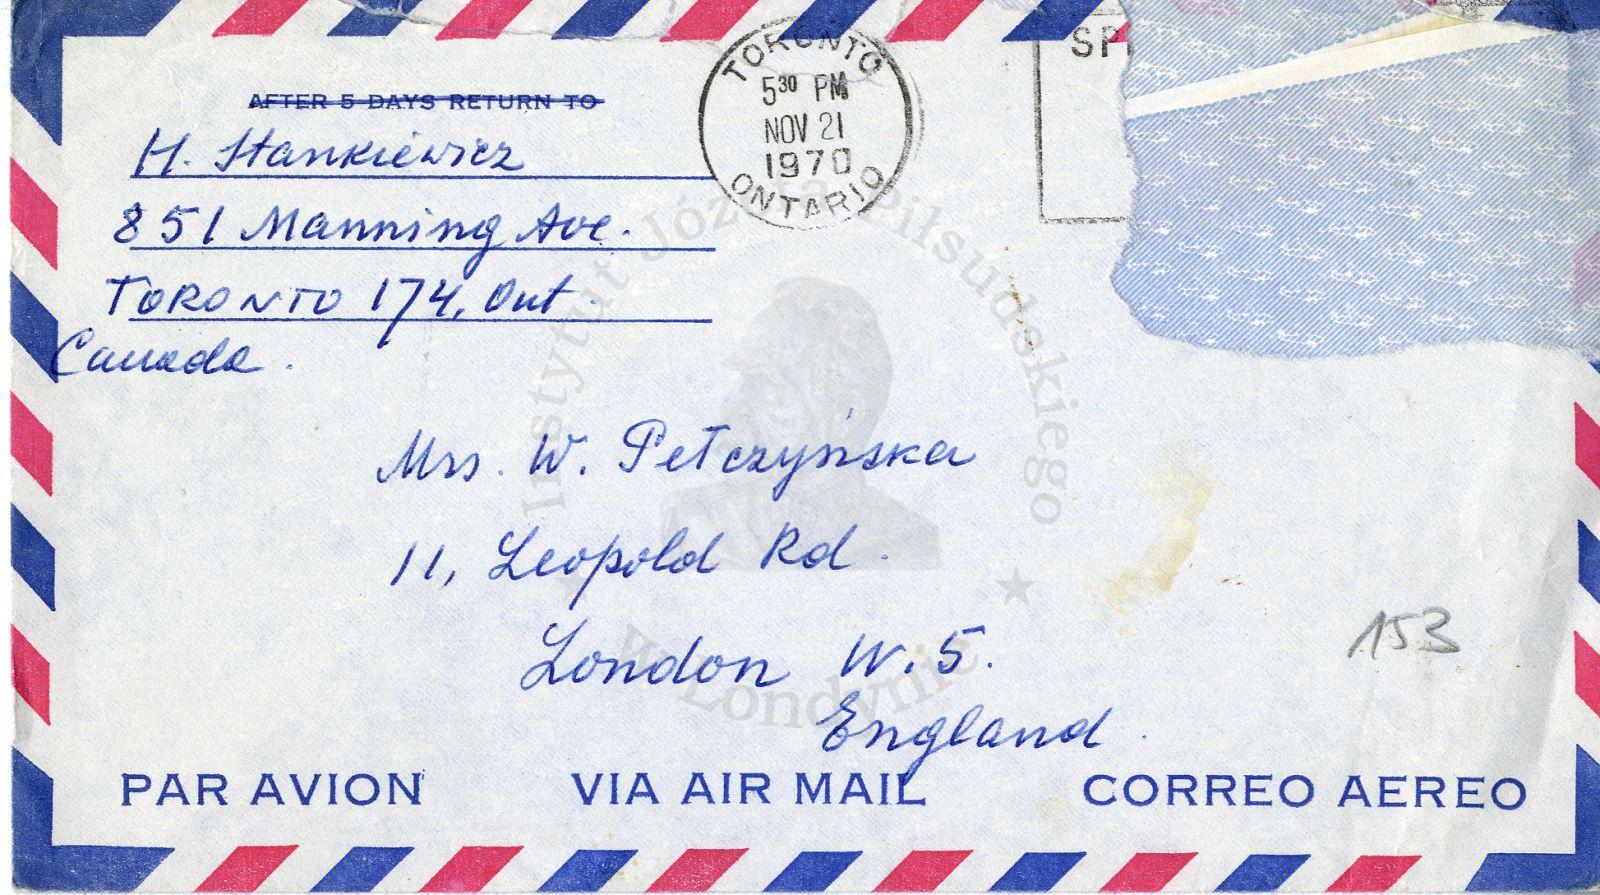 AFTER 5 DAYS RETURN TO
H. Stankiewicz
851 Manning Ave.
TORONTO 174, Ont.
Canada.
TORONTO
5³⁰ PM
NOV 21
1970
ONTARIO
Mrs. W. Pełczyńska
11, Leopold Rd.
London W.5.
England.
153
PAR AVION VIA AIR MAIL CORREO AEREO
Instytut Józefa Piłsudskiego
w Londynie